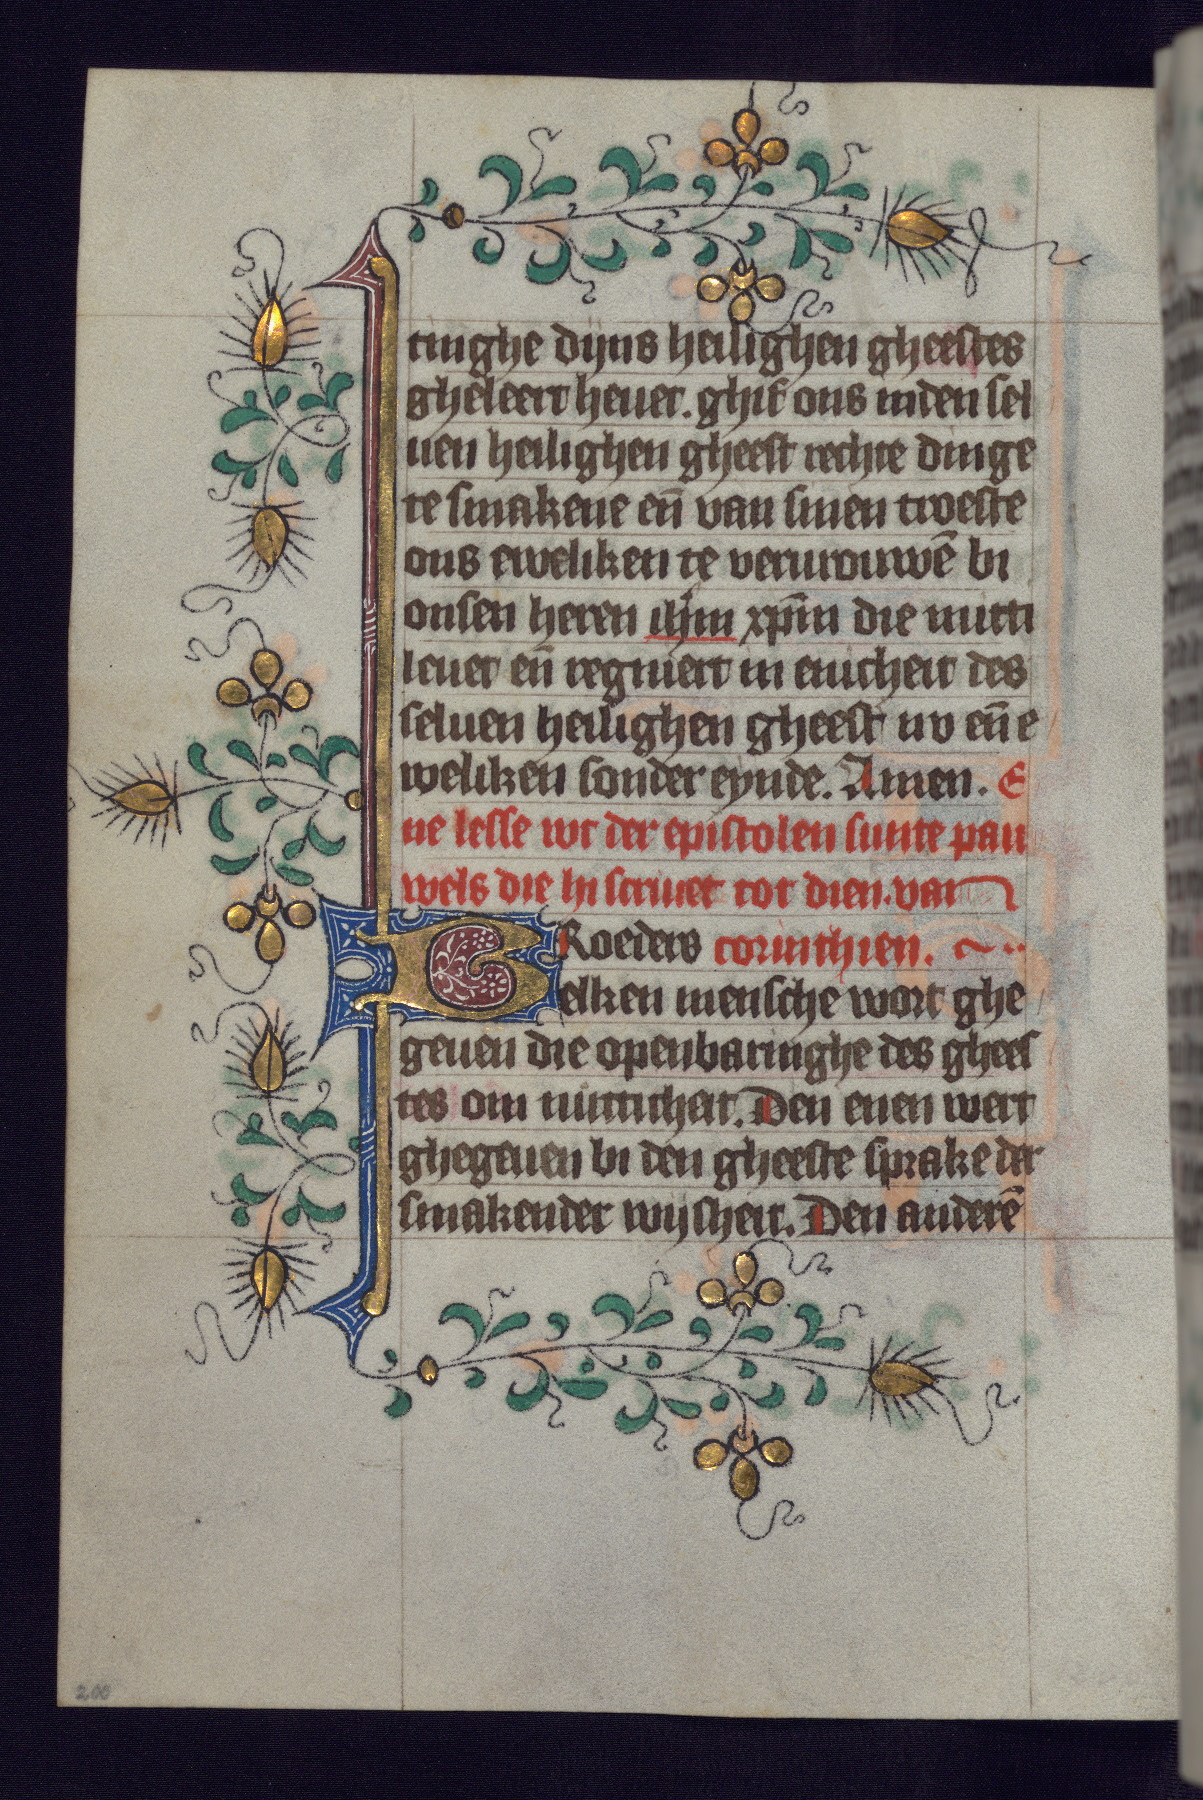 tinghe dijns heilighen gheestes
gheleert heuet. ghif ons inden sel
uen heilighen gheest rechte dinge
te smakene en̄ van sinen troeste
ons eweliken te verurouwē bi
onsen heren ihm̄ xpm̄ die mitti
leuet en̄ regniert in enicheit des
seluen heilighen gheest uv en̄ e
weliken sonder eynde. Amen. E
ne lesse wt der epistolen sunte pau
wels die hi scriuet tot dien. van
BRoeders corinthien.
elken mensche wort ghe
geuen die openbaringhe des ghees
tes om nutticheit. Den enen wert
ghegeuen bi den gheeste sprake der
smakender wijsheit. Den anderē
200